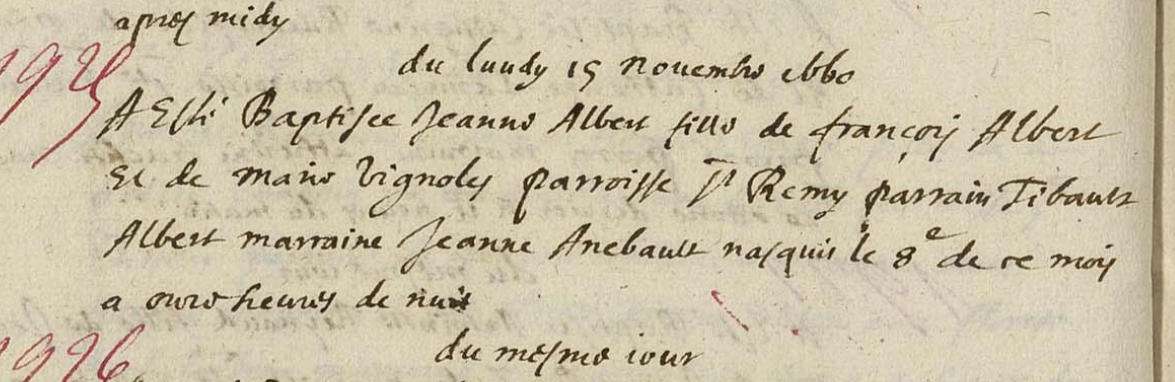 apres midy
du lundy 15 novembre 1660
1925
A Esté Baptisee Jeanne Albert fille de françois Albert
Et de marie Vignoles parroisse St Remy parrain Tibault
Albert marraine Jeanne Anebault nasquit le 8e de ce mois
a onze heures de nuit
1926
du mesme iour